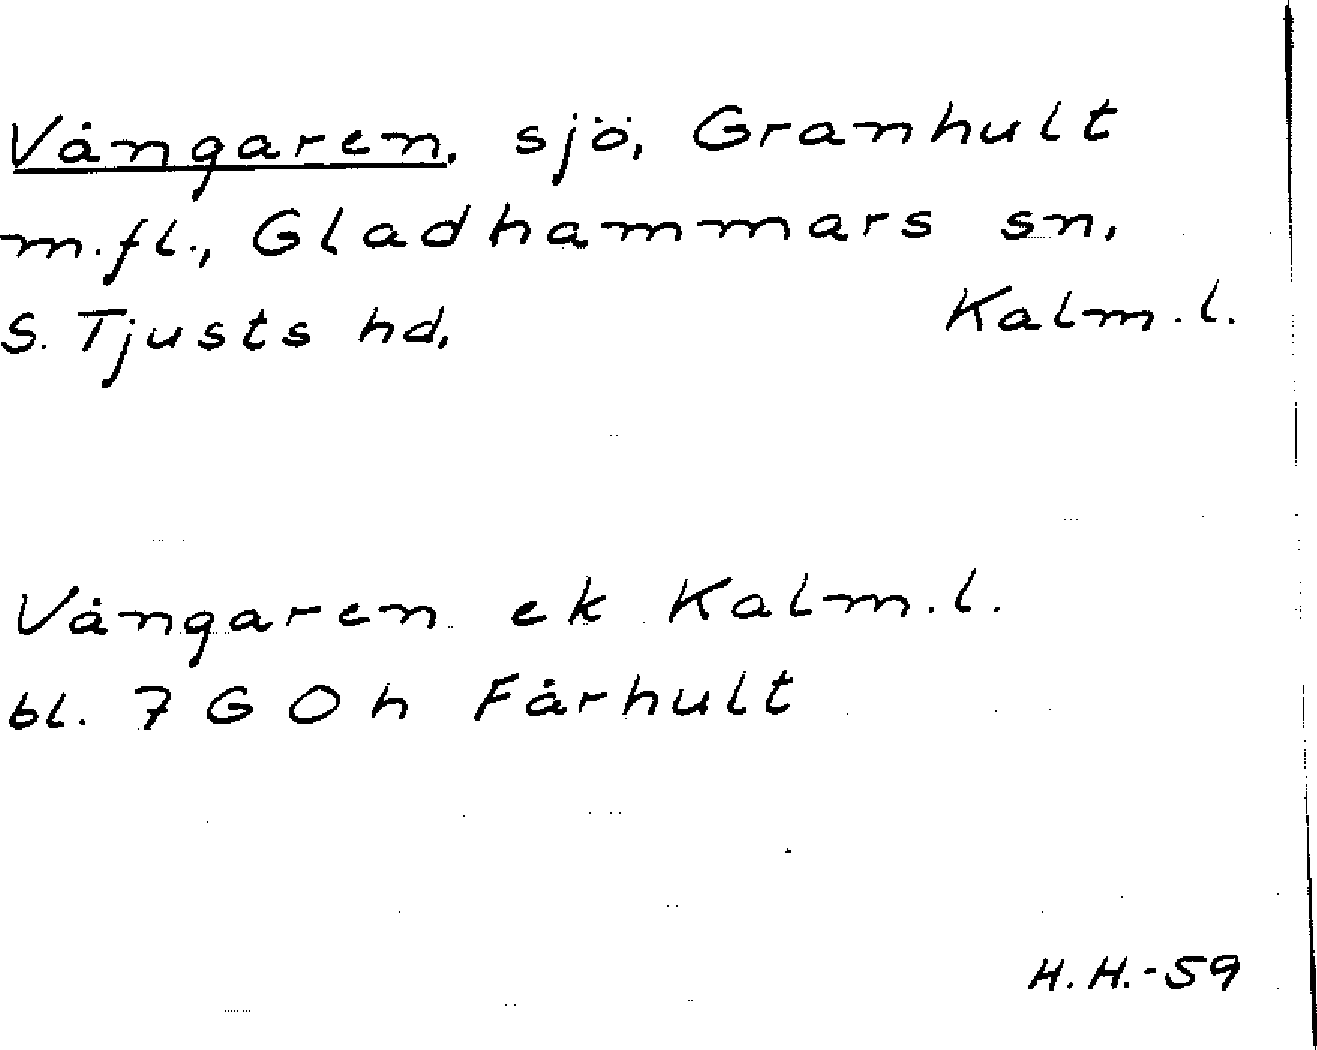 Vångaren, sjö, Granhult
m.fl., Gladhammars sn,
S. Tjusts hd. Kalm.l.
Vångaren ek Kalm.l.
bl. 7 G O h Fårhult
H.H.-59